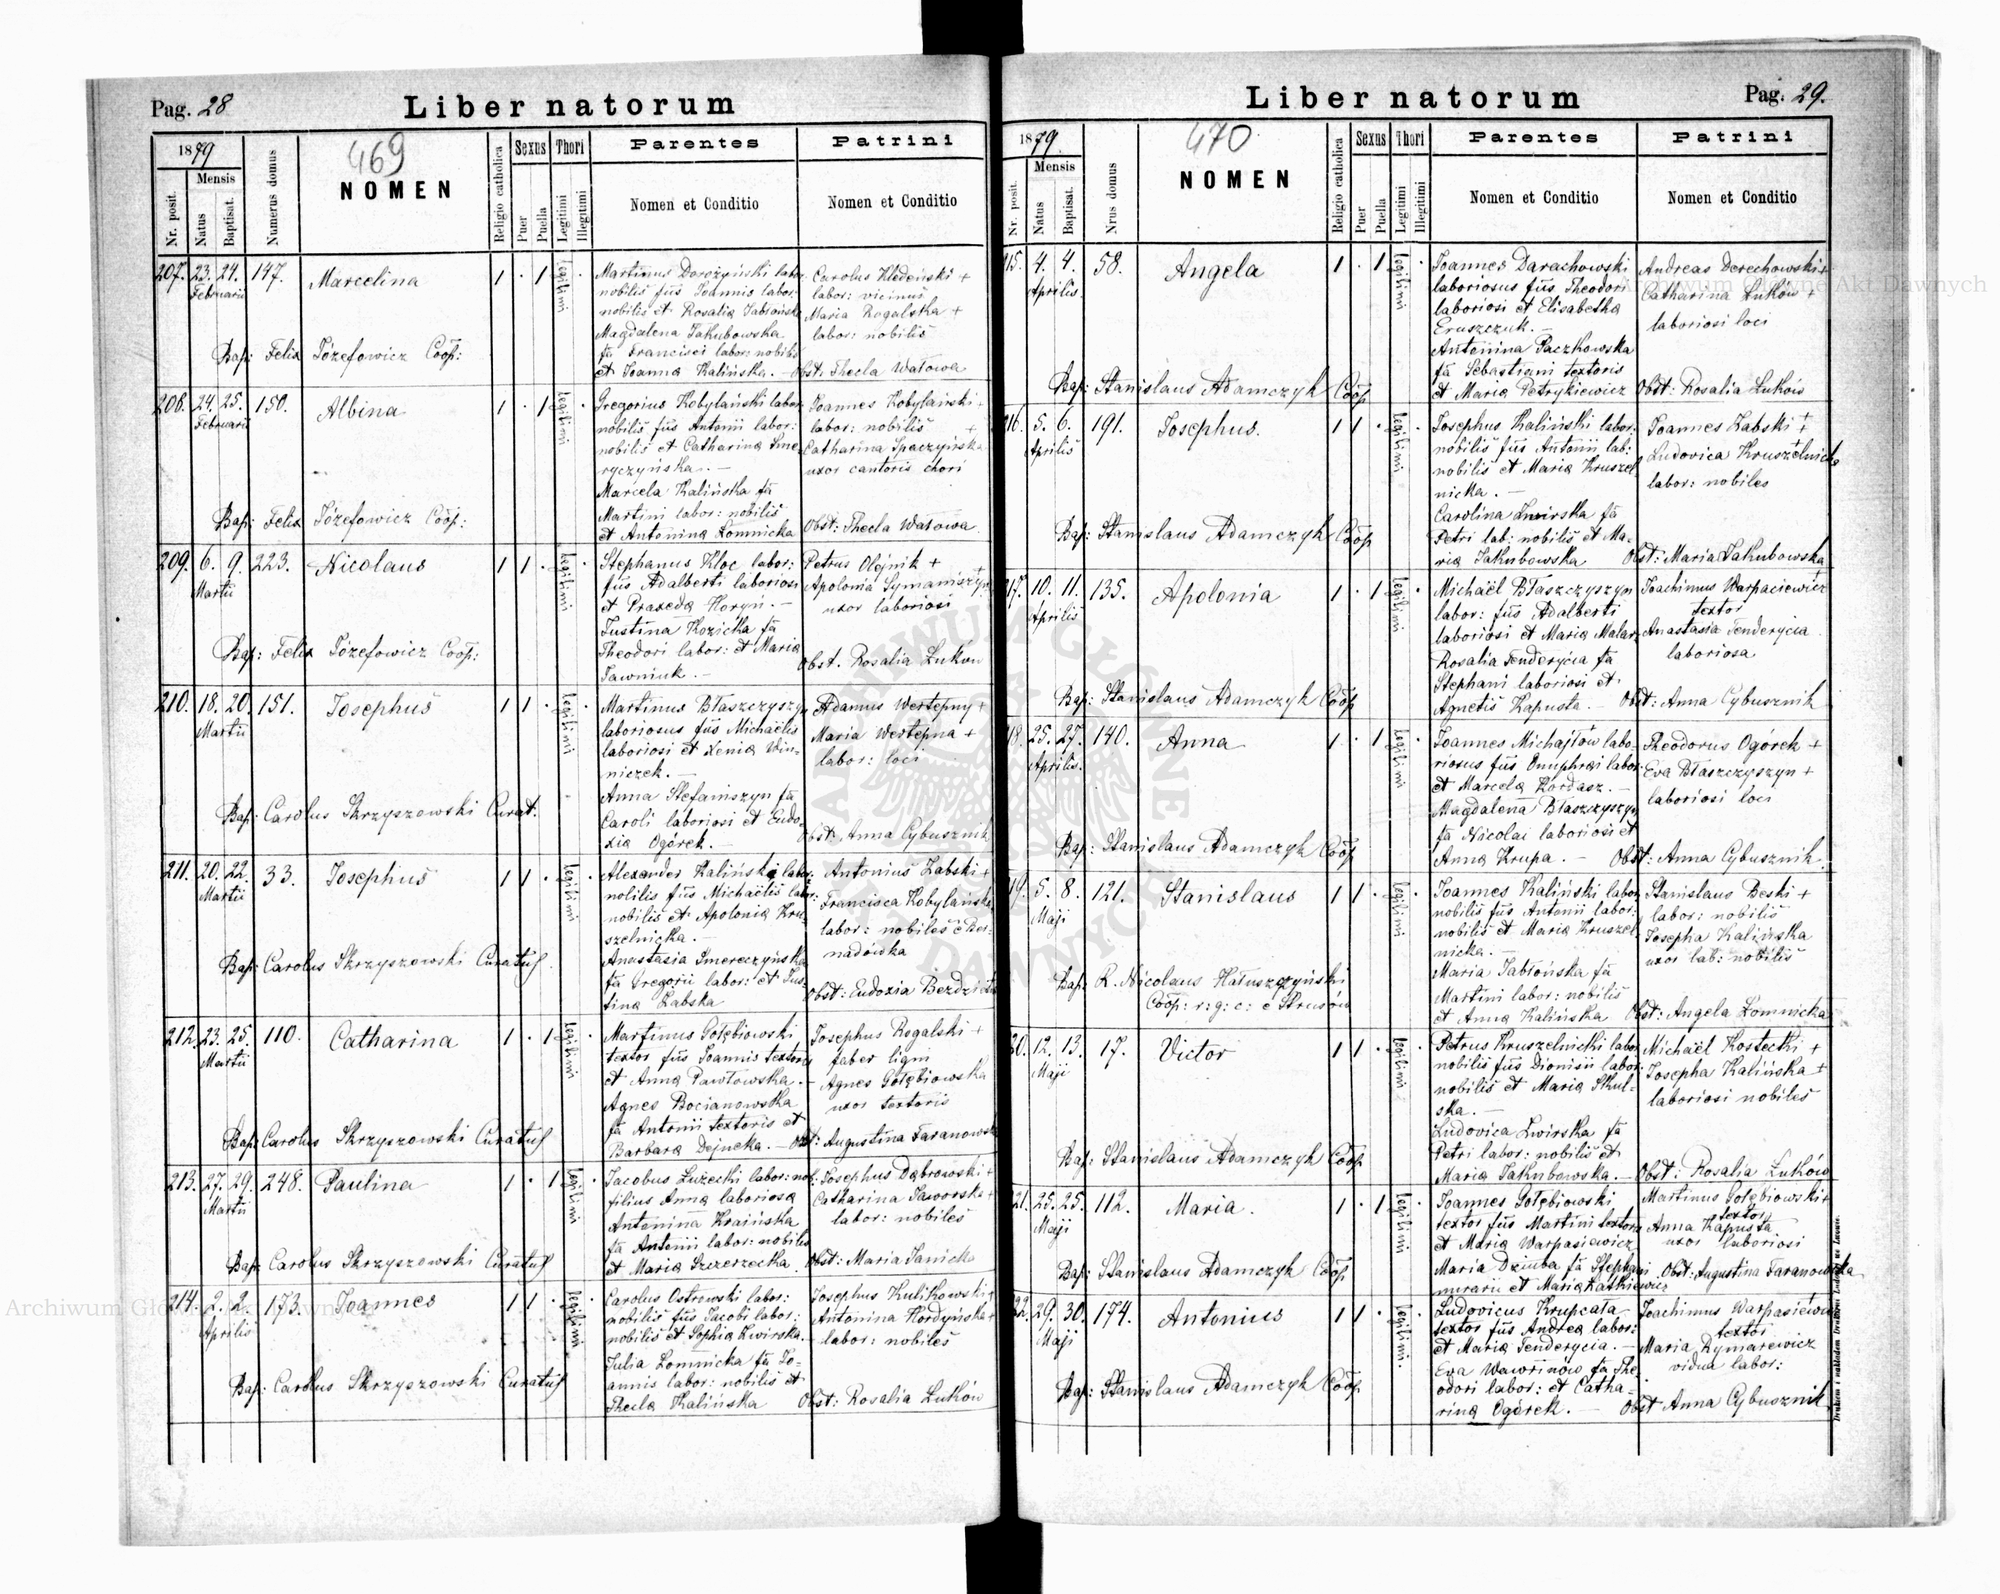 Pag. 28
Liber natorum
1879
Nr. posit.
Mensis
Natus
Baptisat.
Numerus domus
469
NOMEN
Religio catholica
Sexus
Puer
Puella
Thori
Legitimi
Illegitimi
Parentes
Nomen et Conditio
Patrini
Nomen et Conditio
207. 23. 24. 147. Marcelina 1 · 1 legitimi ·
Februarii
Martinus Dorożyński labor:
nobilis fius Joannis labor:
nobilis et Rosalia Jabłońska
Magdalena Jakubowska
fa Francisci labor: nobilis
et Joanna Kalińska. —
Carolus Kłodeński +
labor: vicinus
Maria Rogalska +
labor: nobilis
Obst: Thecla Watowa
Bap: Felix Józefowicz Coop:
208. 24. 25. 150. Albina 1 · 1 legitimi ·
Februarii
Gregorius Kobylański labor:
nobilis fius Antonii labor:
nobilis et Catharina Sme-
ryczyńska. —
Marcela Kalińska fa
Martini labor: nobilis
et Antonina Łomnicka
Joannes Kobylański +
labor: nobilis +
Catharina Spaczyńska
uxor cantoris chori
Obst: Thecla Watowa
Bap: Felix Józefowicz Coop:
209. 6. 9. 223. Nicolaus 1 1 · legitimi ·
Martii
Stephanus Kloc labor:
fius Adalberti laboriosi
et Praxeda Horyń. —
Justina Kozicka fa
Theodori labor: et Maria
Jawniuk. —
Petrus Olejnik +
Apolonia Symaniszyn +
uxor laboriosi
Obst. Rosalia Luków
Bap: Felix Józefowicz Coop:
210. 18. 20. 151. Josephus 1 1 · legitimi ·
Martii
Martinus Błaszczyszyn
laboriosus fius Michaëlis
laboriosi et Xenia Win-
niczek. —
Anna Stefaniszyn fa
Caroli laboriosi et Eudo-
xia Ogórek. —
Adamus Wertepny +
Maria Wertepna +
labor: loci
Obst: Anna Cybusznik
Bap: Carolus Skrzyszowski Curat.
211. 20. 22. 33. Josephus 1 1 · legitimi ·
Martii
Alexander Kaliński labor:
nobilis fius Michaëlis labor:
nobilis et Apolonia Kru-
szelnicka. —
Anastasia Smereczyńska
fa Gregorii labor: et Jus-
tina Łabska
Antonius Łabski +
Francisca Kobylańska
labor: nobiles e Ber-
nadówka
Obst: Eudoxia
Bap: Carolus Skrzyszowski Curatus
212. 23. 25. 110. Catharina 1 · 1 legitimi ·
Martii
Martinus Gołębiowski
textor fius Joannis textoris
et Anna Pawłowska. —
Agnes Bocianowska
fa Antonii textoris et
Barbara Dejneka. —
Josephus Rogalski +
faber ligni
Agnes Gołębiowska
uxor textoris
Obst: Augustina Taranowska
Bap: Carolus Skrzyszowski Curatus
213. 27. 29. 248. Paulina 1 · 1 legitimi ·
Martii
Jacobus Łużecki labor: nob:
filius Anna laboriosa
Antonina Kraińska
fa Antonii labor: nobilis
et Maria Szczerzecka.
Josephus Dąbrowski +
Catharina Jaworska +
labor: nobiles
Obst: Maria Janicka
Bap: Carolus Skrzyszowski Curatus
214. 2. 2. 173. Joannes 1 1 · legitimi ·
Aprilis
Carolus Ostrowski labor:
nobilis fius Jacobi labor:
nobilis et Sophia Żwirska.
Julia Łomnicka fa Jo-
annis labor: nobilis et
Thecla Kalińska
Josephus Kulikowski +
Antonina Hordyńska +
labor: nobiles
Obst: Rosalia Luków
Bap: Carolus Skrzyszowski Curatus
Liber natorum
Pag. 29.
1879.
Nr. posit.
Mensis
Natus
Baptisat.
Nrus domus
470
NOMEN
Religio catholica
Sexus
Puer
Puella
Thori
Legitimi
Illegitimi
Parentes
Nomen et Conditio
Patrini
Nomen et Conditio
15. 4. 4. 58. Angela 1 · 1 legitimi ·
Aprilis.
Joannes Darachowski
laboriosus fius Theodori
laboriosi et Elisabetha
Eruszczuk. —
Antonina Paczkowska
fa Sebastiani textoris
et Maria Petrykiewicz
Andreas Derechowski +
Catharina Luków +
laboriosi loci
Obst: Rosalia Luków
Bap: Stanislaus Adamczyk Coop
16. 5. 6. 191. Josephus. 1 1 · legitimi ·
Aprilis
Josephus Kaliński labor:
nobilis fius Antonii lab:
nobilis et Maria Kruszel-
nicka. —
Carolina Żwirska fa
Petri lab: nobilis et Ma-
ria Jakubowska
Joannes Łabski +
Ludovica Kruszelnicka +
labor: nobiles
Obst: Maria Jakubowska
Bap: Stanislaus Adamczyk Coop
17. 10. 11. 135. Apolonia 1 · 1 legitimi ·
Aprilis
Michaël Błaszczyszyn
labor: fius Adalberti
laboriosi et Maria Malar-
Rosalia Tenderycia fa
Stephani laboriosi et
Agnetis Kapusta. —
Joachimus Warpaciewicz +
textor
Anastasia Tenderycia
laboriosa
Obst: Anna Cybusznik
Bap: Stanislaus Adamczyk Coop
18. 25. 27. 140. Anna 1 · 1 legitimi ·
Aprilis.
Joannes Michajłów labo-
riosus fius Onuphrei labor:
et Marcela Kordasz. —
Magdalena Błaszczyszyn
fa Nicolai laboriosi et
Anna Krupa. —
Theodorus Ogórek +
Eva Błaszczyszyn +
laboriosi loci
Obst: Anna Cybusznik
Bap: Stanislaus Adamczyk Coop
19. 5. 8. 121. Stanislaus 1 1 · legitimi ·
Maji
Joannes Kaliński labor:
nobilis fius Antonii labor:
nobilis et Maria Kruszel-
nicka. —
Maria Jabłońska fa
Martini labor: nobilis
et Anna Kalińska
Stanislaus Beski +
labor: nobilis
Josepha Kalińska
uxor lab: nobilis
Obst: Angela Łomnicka
Bap: R. Nicolaus Hałuszczyński
Coop: r: g: c: e Strusów
20. 12. 13. 17. Victor 1 1 · legitimi ·
Maji
Petrus Kruszelnicki labor:
nobilis fius Dionisii labor:
nobilis et Maria Skul-
ska. —
Ludovica Żwirska fa
Petri labor: nobilis et
Maria Jakubowska. —
Michaël Kostecki +
Josepha Kalińska +
laboriosi nobiles
Obst: Rosalia Luków
Bap: Stanislaus Adamczyk Coop
21. 25. 25. 112. Maria. 1 · 1 legitimi ·
Maji
Joannes Gołębiowski
textor fius Martini textoris
et Maria Warpasiewicz
Maria Dziuba fa Stephani
murarii et Maria Katkiewicz
Martinus Gołębiowski +
textor
Anna Kapusta
uxor laboriosi
Obst: Augustina Taranowska
Bap: Stanislaus Adamczyk Coop
22. 29. 30. 174. Antonius 1 1 · legitimi ·
Maji
Ludovicus Krupcata
textor fius Andrea labor:
et Maria Tenderycia. —
Eva Wawrinów fa The-
odori labor: et Catha-
rina Ogórek. —
Joachimus Warpasiewicz
textor
Maria Rymarewicz
vidua labor:
Obst Anna Cybusznik
Bap: Stanislaus Adamczyk Coop
Archiwum Główne Akt Dawnych
Archiwum Główne Akt Dawnych
ARCHIWUM GŁÓWNE AKT DAWNYCH